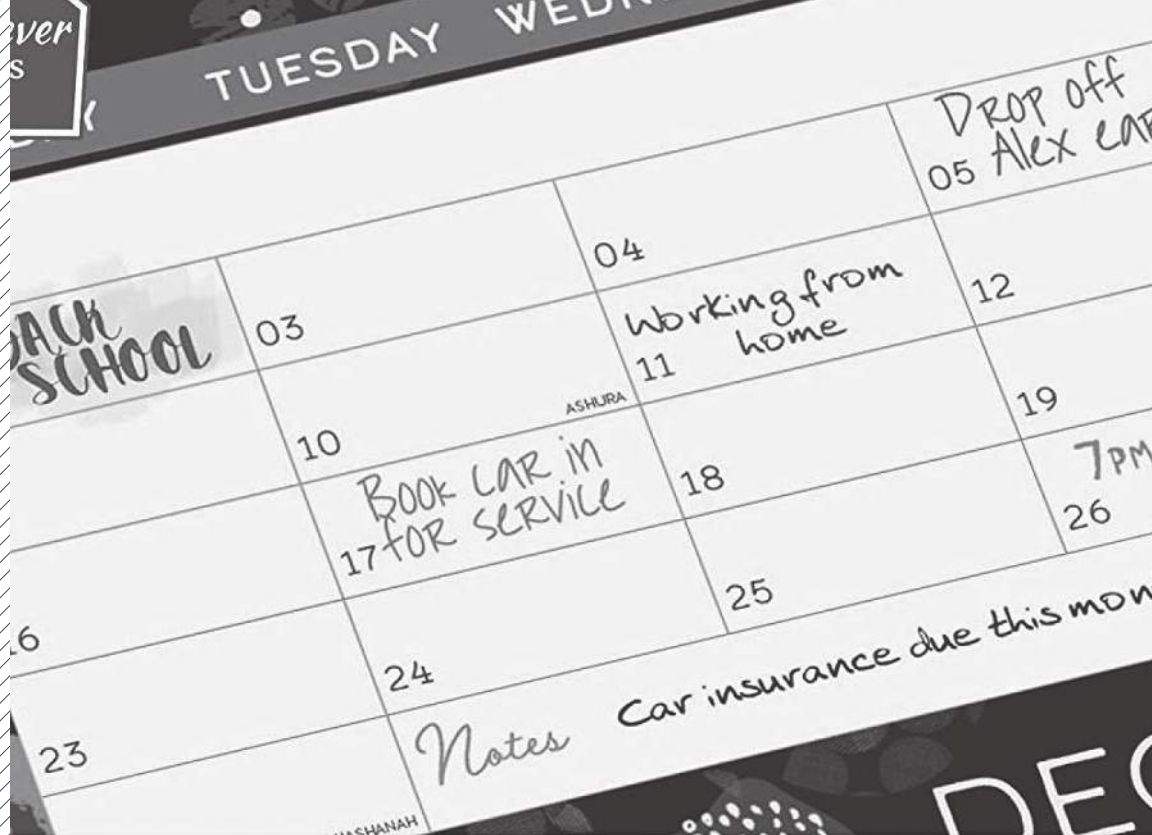 TUESDAY
Drop off
05 Alex
04
BACK
SCHOOL
03
12
Working from
home
11
ASHURA
10
19
Book car in
17 for service
18
7PM
26
16
25
24
Notes Car insurance due this
23
HASHANAH